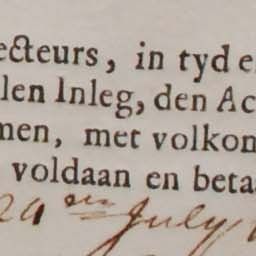 ecteurs, in tyd e
len Inleg, den Ac
men, met volkon
voldaan en beta
July